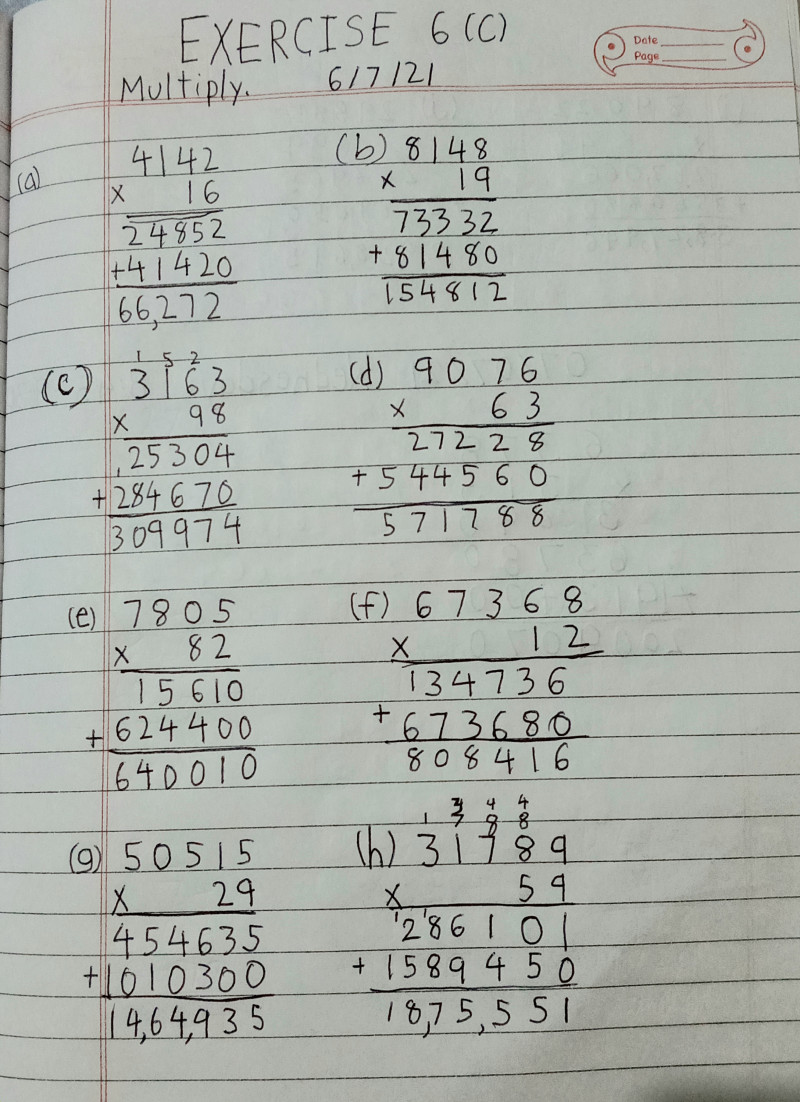 EXERCISE 6 (C)
Date
Page
Multiply. 6/7/21
(a) 4142
x 16
24852
+41420
66,272
(b) 8148
x 19
73332
+81480
154812
1 5 2
(c) 3163
x 98
25304
+284670
309974
(d) 9076
x 63
27228
+544560
571788
(e) 7805
x 82
15610
+624400
640010
(f) 67368
x 12
134736
+673680
808416
(g) 50515
x 29
454635
+1010300
14,64,935
4 4
1 7 8 8
(h) 31789
x 59
286101
+1589450
18,75,551